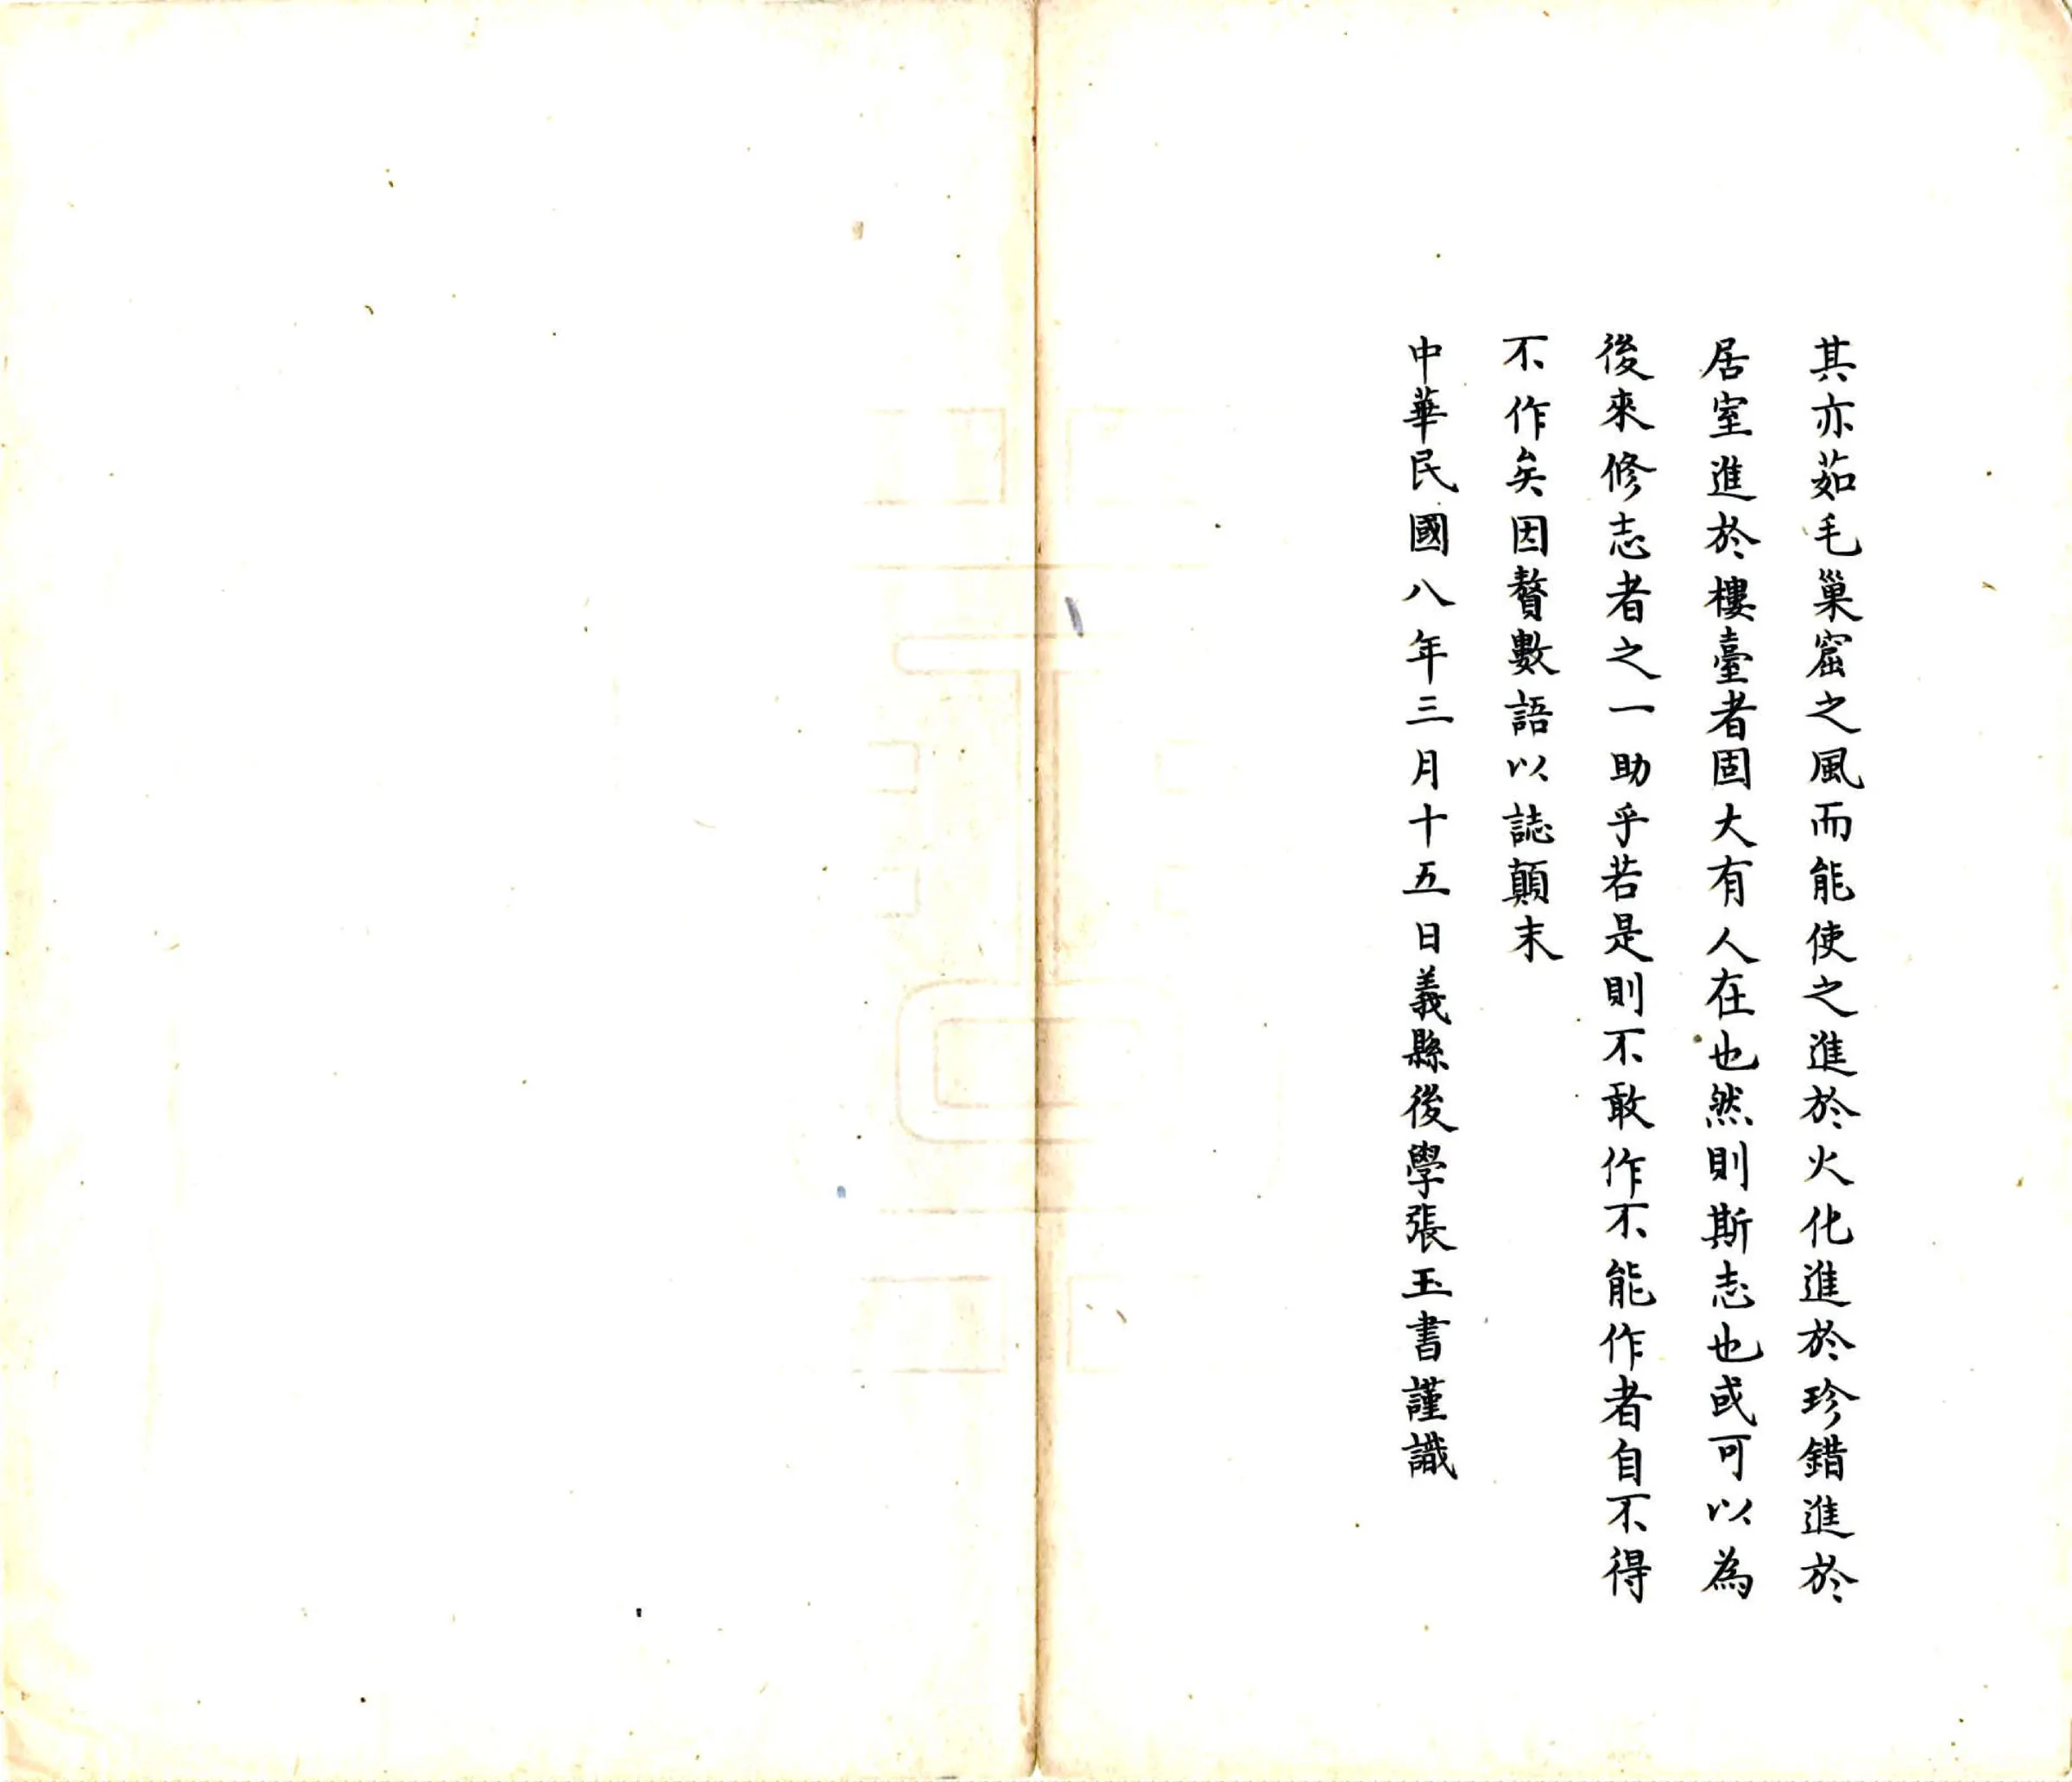 其亦茹毛巢窟之風而能使之進於火化進於珍錯進於
居室進於樓臺者固大有人在也然則斯志也或可以為
後來修志者之一助乎若是則不敢作不能作者自不得
不作矣因贅數語以誌顛末
中華民國八年三月十五日義縣後學張玉書謹識